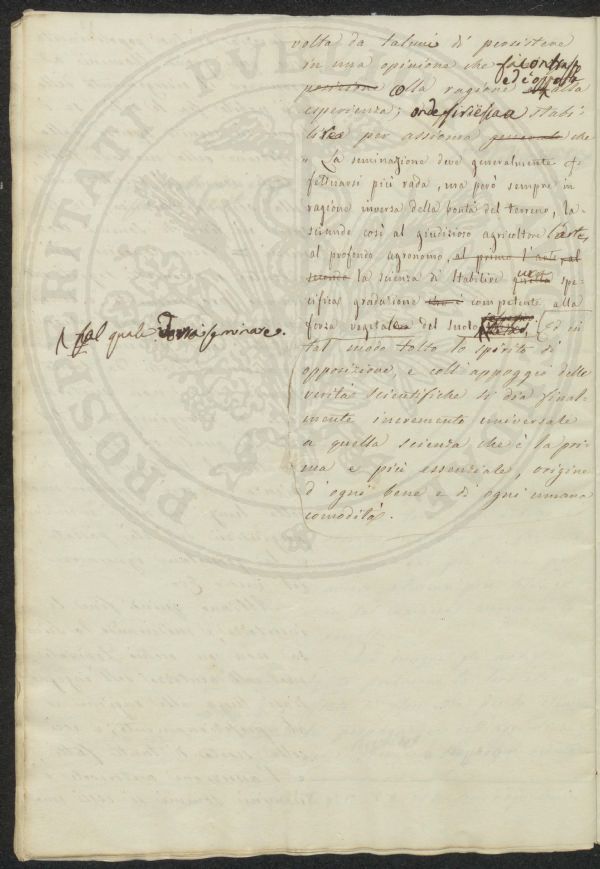 volta da taluni di persistere
in una opinione che fa contrap
posizione colla ragione ed è opposta alla
esperienza; onde si riesca a stabi-
lire per assioma generale che
" La seminazione deve generalmente ef-
fettuarsi più rada, ma però sempre in
ragione inversa della bontà del terreno, la-
sciando così al giudizioso agricoltore l'arte,
al profondo agronomo, al primo l'arte, al
secondo la scienza di stabilire quella spe-
cifica graduazione che è competente alla
forza vegetale del suolo
sul quale dovrà seminare.
ed in
tal modo tolto lo spirito di
opposizione, e coll'appoggio delle
verità scientifiche si dia final-
mente incremento universale
a quella scienza che è la pri-
ma e più essenziale, origine
d'ogni bene e di ogni umana
comodità.
PROSPERITATI PUBLICAE